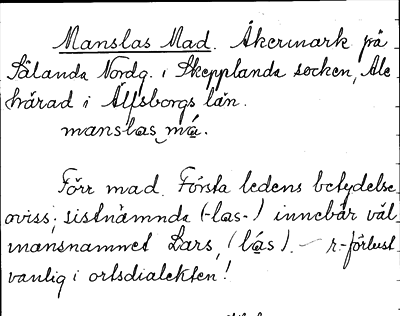 Manslas Mad. Åkermark på
Sålanda Nordg. i Skepplanda socken, Ale
härad i Älfsborgs län.
manslas má.
Förr mad. Första ledens betydelse
oviss; sistnämnda (-las-) innebär väl
mansnamnet Lars, (lás). — r-förlust
vanlig i ortsdialekten!